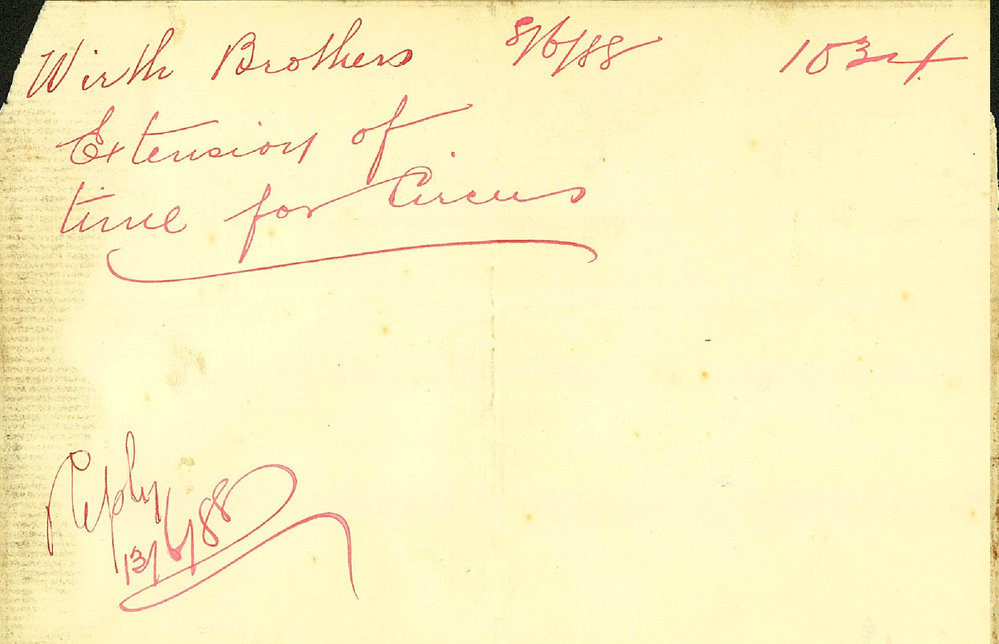 Wirth Brothers 8/6/88 1034
Extension of
time for Circus
Reply
13/6/88